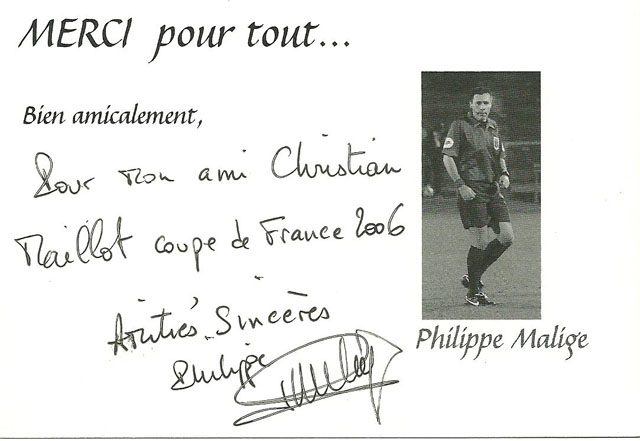 MERCI pour tout...
Bien amicalement,
Pour mon ami Christian
Maillot coupe de France 2006
Amitiés Sincères
Philippe
Philippe Malige